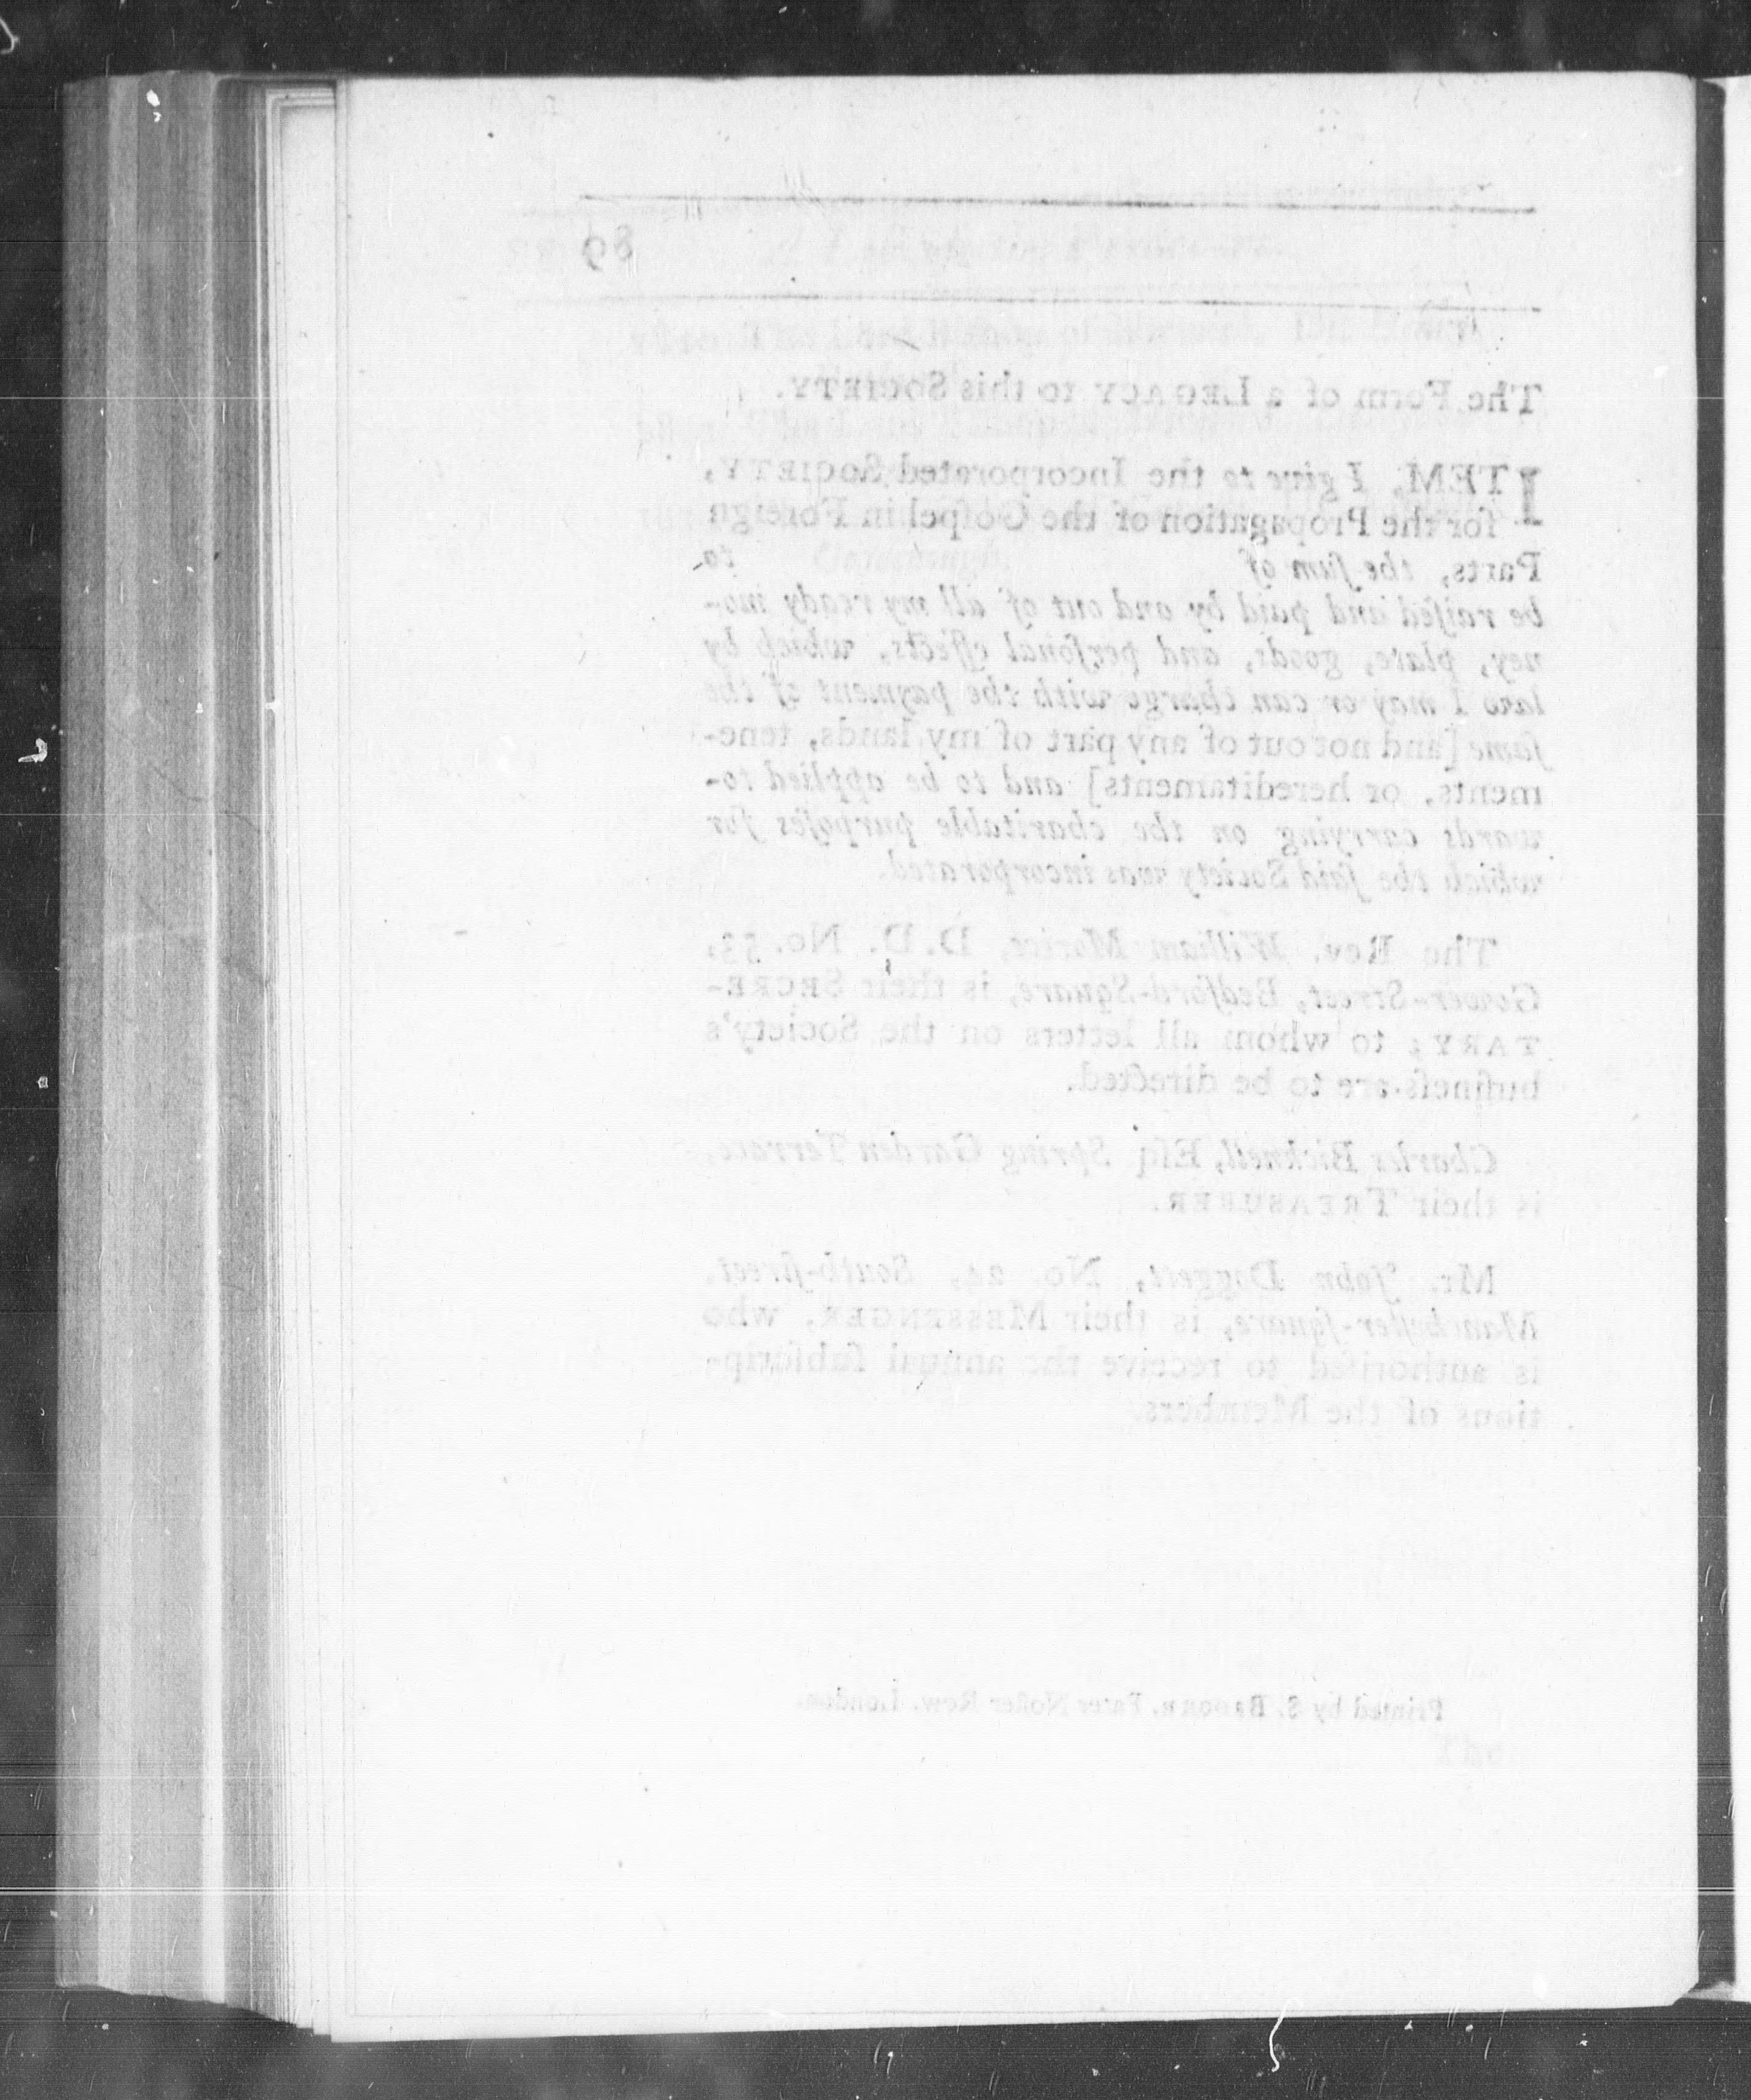 89
The Form of a LEGACY to this SOCIETY.
ITEM, I give to the Incorporated SOCIETY,
for the Propagation of the Goſpel in Foreign
Parts, the ſum of to
be raiſed and paid by and out of all my ready mo-
ney, plate, goods, and perſonal effects, which by
law I may or can charge with the payment of the
ſame [and not out of any part of my lands, tene-
ments, or hereditaments] and to be applied to-
wards carrying on the charitable purpoſes for
which the ſaid Society was incorporated.
The Rev. William Morice, D.D. No. 53,
Gower-Street, Bedford-Square, is their SECRE-
TARY; to whom all letters on the Society's
buſineſs are to be directed.
Charles Bicknell, Eſq; Spring Garden Terrace,
is their TREASURER.
Mr. John Doggett, No. 24, South-ſtreet,
Mancheſter-ſquare, is their MESSENGER, who
is authoriſed to receive the annual ſubſcrip-
tions of the Members.
Printed by S. BROOKE, Pater Noſter Row, London.